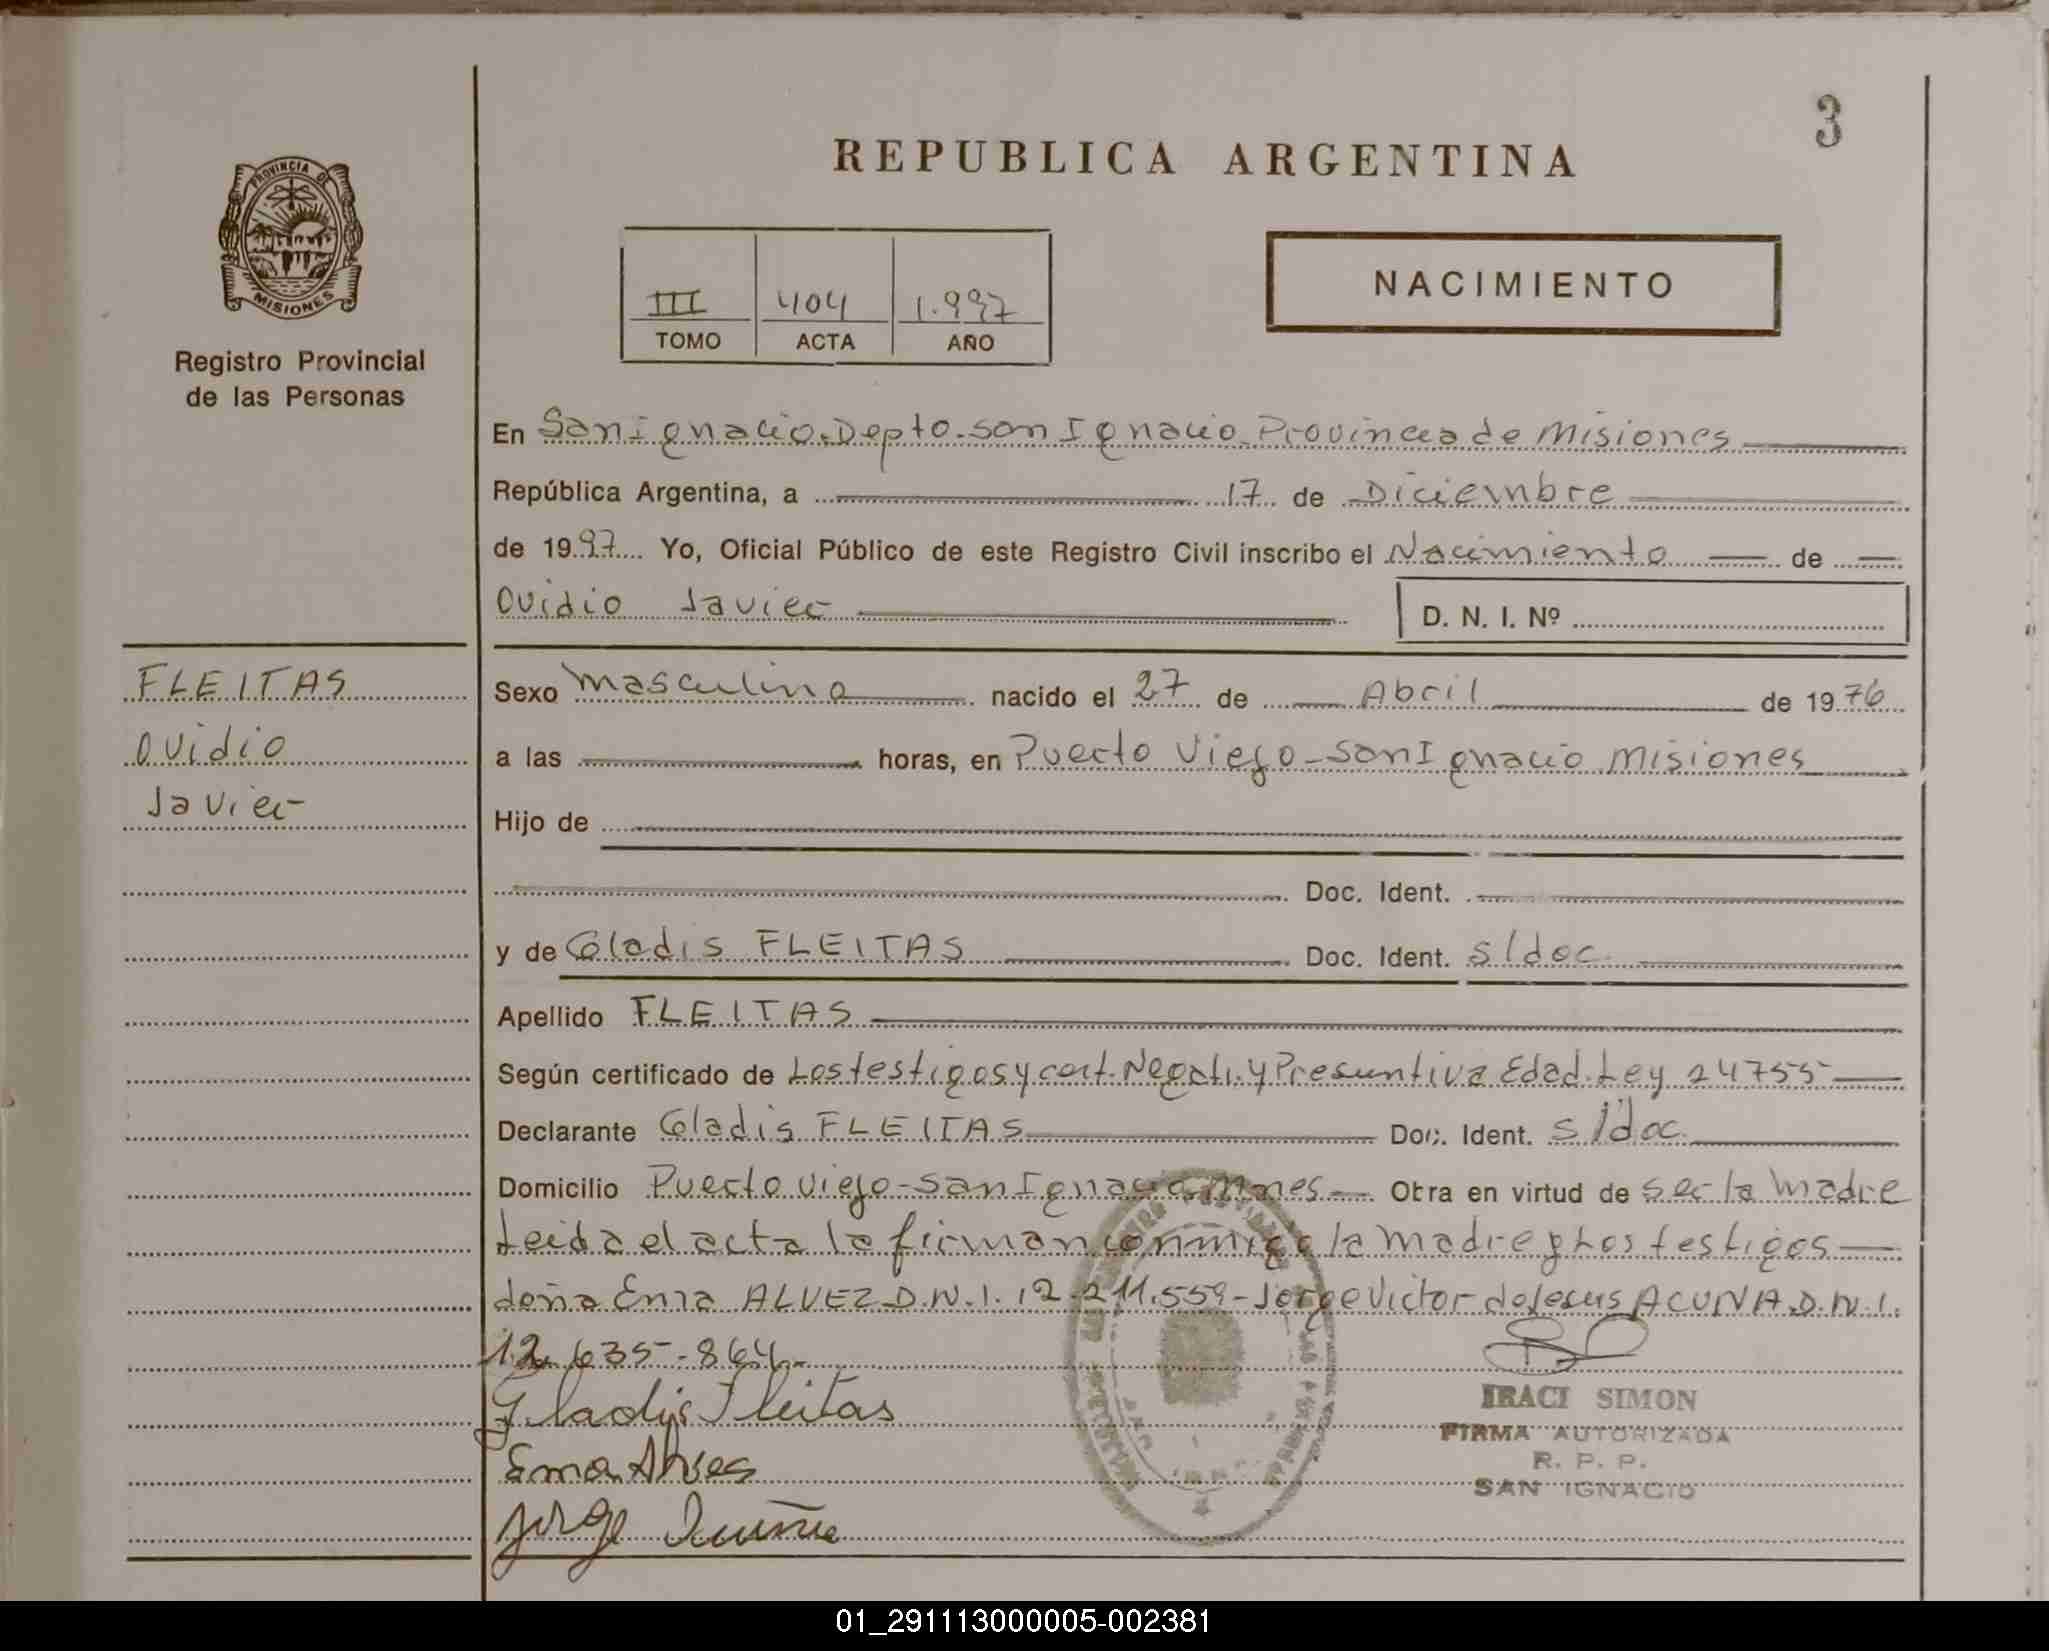 3
REPUBLICA ARGENTINA
PROVINCIA DE
MISIONES
Registro Provincial
de las Personas
III 404 1.997
TOMO ACTA AÑO
NACIMIENTO
En San Ignacio. Depto. San Ignacio. Provincia de Misiones
República Argentina, a 17 de Diciembre
de 1997 Yo, Oficial Público de este Registro Civil inscribo el Nacimiento de
Ovidio Javier D. N. I. Nº
FLEITAS
Ovidio
Javier
Sexo masculino nacido el 27 de Abril de 1976
a las horas, en Puerto Viejo - San Ignacio Misiones
Hijo de
Doc. Ident.
y de Gladis FLEITAS Doc. Ident. s/doc.
Apellido FLEITAS
Según certificado de Los testigos y cert. Negati. y Presuntiva Edad. Ley 24755
Declarante Gladis FLEITAS Doc. Ident. s/doc.
Domicilio Puerto Viejo - San Ignacio Mnes Obra en virtud de ser la madre
Leida el acta la firman conmigo la madre y Los testigos
doña Ema ALVEZ D.N.I. 12.211.559 - Jorge Victor de Jesus ACUÑA. D.N.I.
12.635.864.
Gladys Fleitas
Ema Alves
Jorge Acuña
IRACI SIMON
FIRMA AUTORIZADA
R. P. P.
SAN IGNACIO
01_291113000005-002381